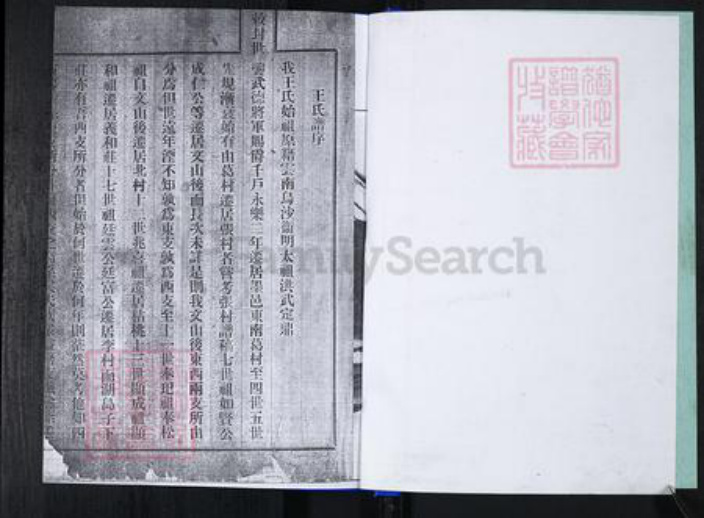 王氏譜序
我王氏始祖原籍雲南烏沙衛明太祖洪武定鼎
敕封世襲武德將軍賜爵千戶永樂二年遷居墨邑東南葛村至四世五世
生規漸衰始有由葛村遷居張村者嘗考張村譜稿七世祖如賢公
成仁公等遷居文山後而長次未詳是則我文山後東西兩支所由
分焉但世遠年湮不知孰為東支孰為西支至十一世奉祀祖奉松
祖自文山後遷居北村十二世兆喜祖遷居結桃十三世顯成祖顯
和祖遷居義和莊十七世祖廷雲公廷富公遷居李村南湖島子下
莊亦有言西支所分者但始於何世遷於何年則茫然莫考他如四
FamilySearch
譜學會
收藏